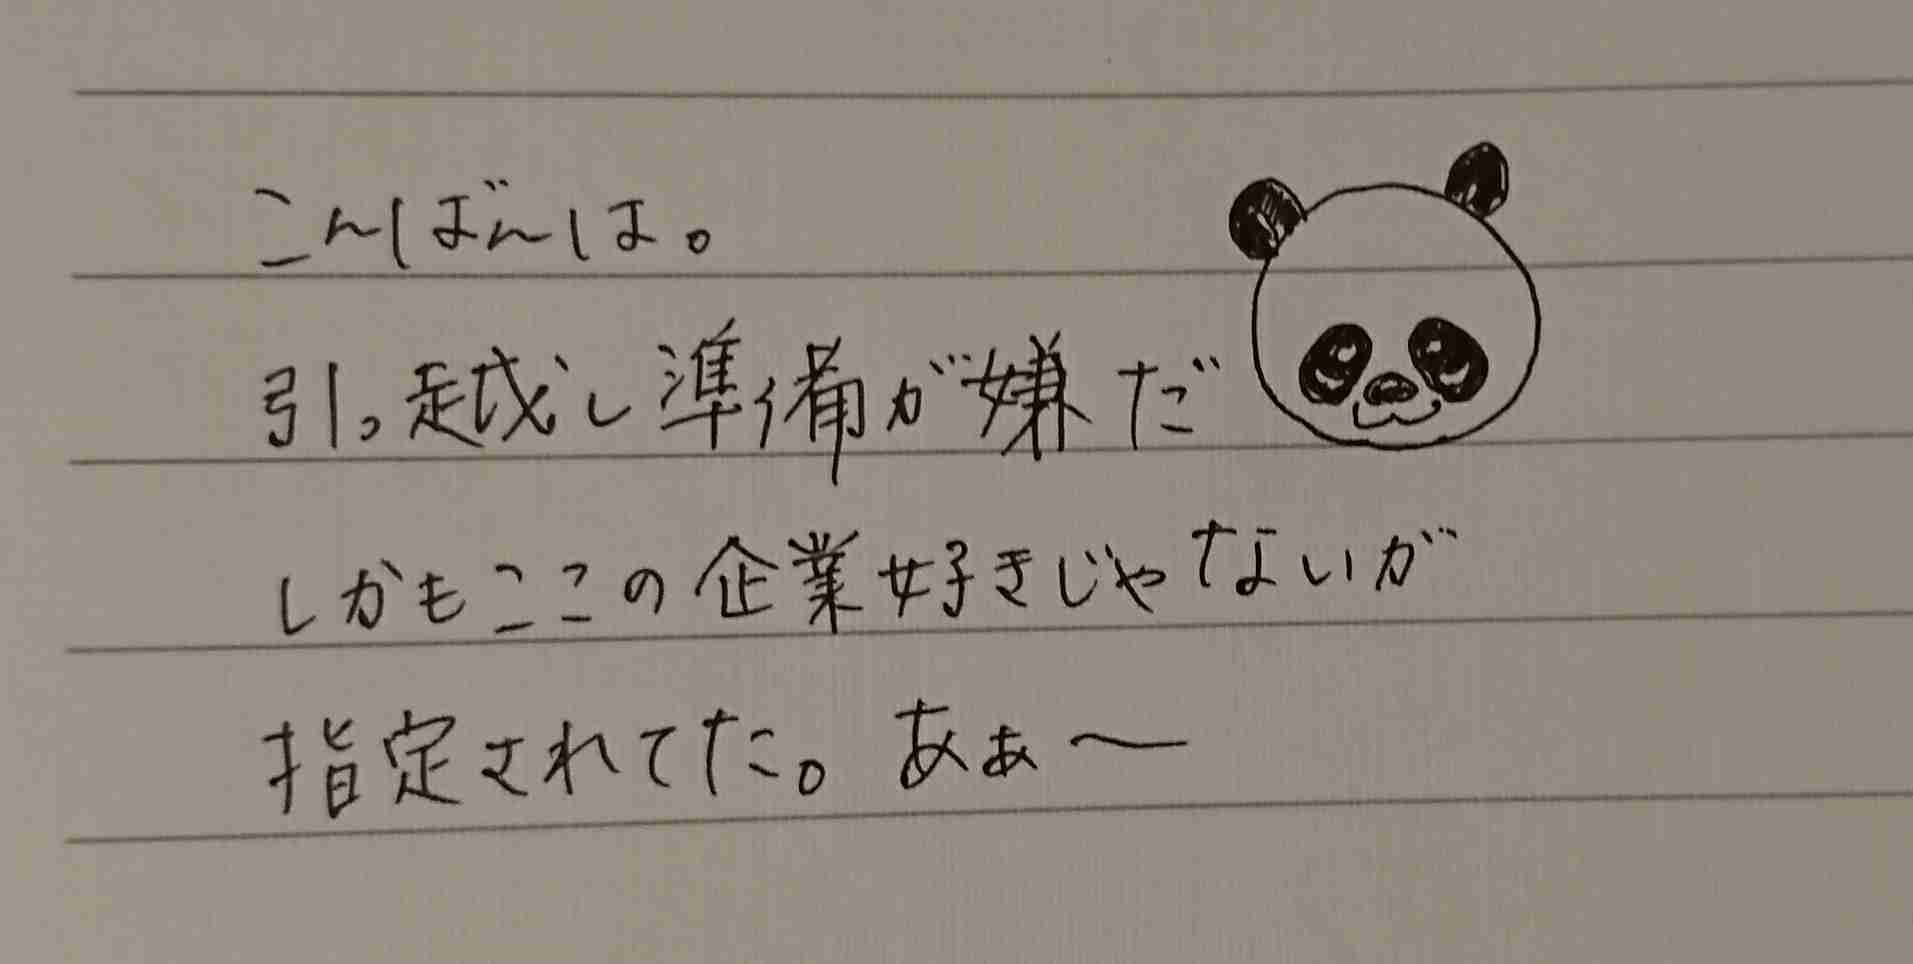 こんばんは。
引っ越し準備が嫌だ
しかもここの企業好きじゃないが
指定されてた。あぁ〜